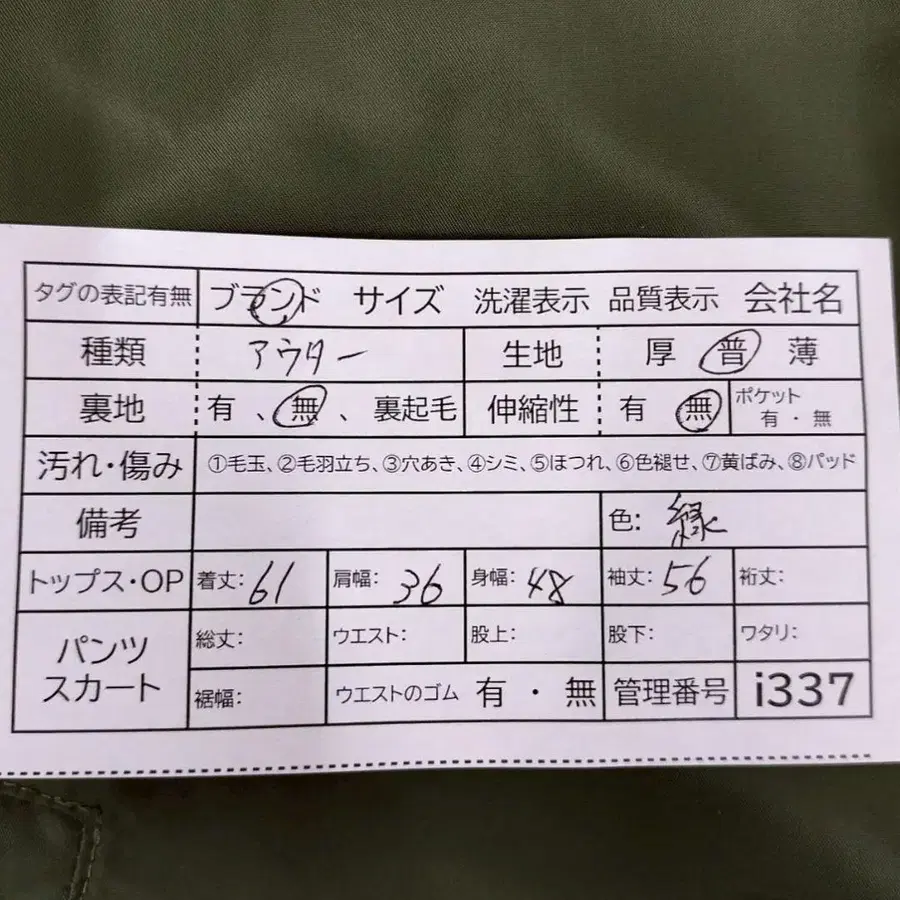 タグの表記有無 ブランド サイズ 洗濯表示 品質表示 会社名
種類 アウター 生地 厚 普 薄
裏地 有、無、裏起毛 伸縮性 有 無 ポケット 有・無
汚れ・傷み ①毛玉、②毛羽立ち、③穴あき、④シミ、⑤ほつれ、⑥色褪せ、⑦黄ばみ、⑧パッド
備考 色: 緑
トップス・OP 着丈: 61 肩幅: 36 身幅: 48 袖丈: 56 裄丈:
パンツ スカート 総丈: ウエスト: 股上: 股下: ワタリ:
裾幅: ウエストのゴム 有・無 管理番号 i337